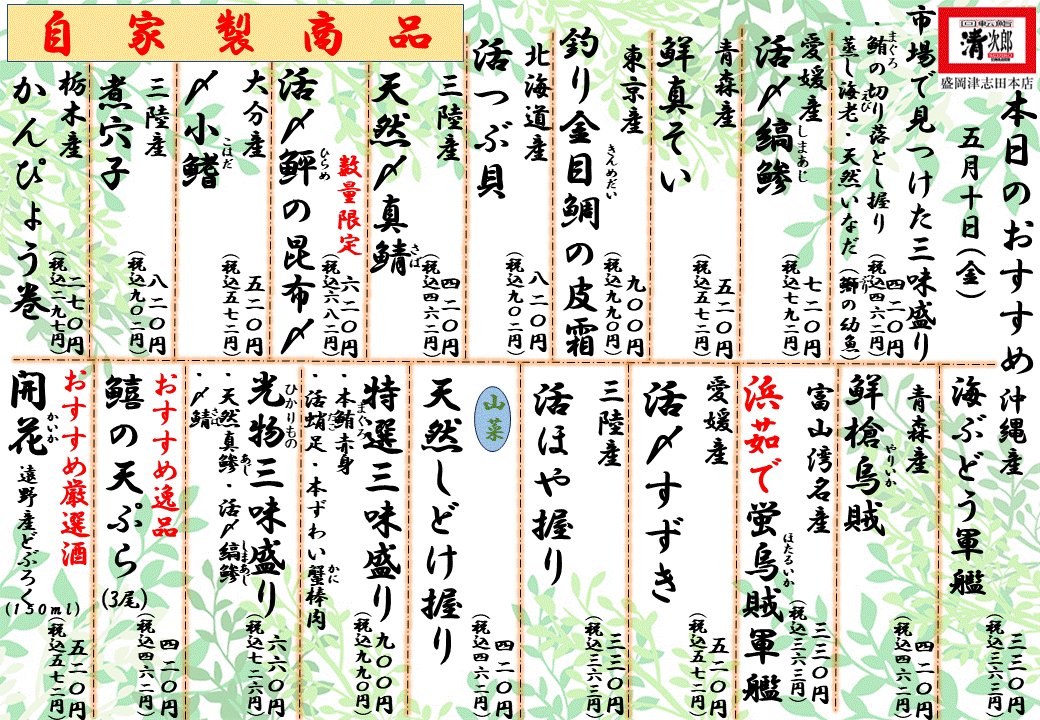 回転鮨
清次郎
盛岡津志田本店
本日のおすすめ
五月十日(金)
市場で見つけた三味盛り
・鮪の切り落とし握り
まぐろ
・蒸し海老・天然いなだ(鰤の幼魚)
えび
ぶり
四二〇円
(税込四六二円)
愛媛産
活〆縞鯵
しまあじ
七二〇円
(税込七九二円)
青森産
鮮真そい
五二〇円
(税込五七二円)
東京産
釣り金目鯛の皮霜
きんめだい
九〇〇円
(税込九九〇円)
北海道産
活つぶ貝
八二〇円
(税込九〇二円)
自家製商品
三陸産
天然〆真鯖
さば
四二〇円
(税込四六二円)
数量限定
活〆鮃の昆布〆
ひらめ
六二〇円
(税込六八二円)
大分産
〆小鰭
こはだ
五二〇円
(税込五七二円)
三陸産
煮穴子
八二〇円
(税込九〇二円)
栃木産
かんぴょう巻
二七〇円
(税込二九七円)
沖縄産
海ぶどう軍艦
三三〇円
(税込三六三円)
青森産
鮮槍烏賊
やりいか
四二〇円
(税込四六二円)
富山湾名産
浜茹で蛍烏賊軍艦
ほたるいか
三三〇円
(税込三六三円)
愛媛産
活〆すずき
五二〇円
(税込五七二円)
三陸産
活ほや握り
三三〇円
(税込三六三円)
山菜
天然しどけ握り
四二〇円
(税込四六二円)
特選三味盛り
・本鮪赤身
まぐろ
・活蛸足・本ずわい蟹棒肉
たこ
かに
九〇〇円
(税込九九〇円)
光物三味盛り
ひかりもの
・天然真鯵・活〆縞鯵
あじ
しまあじ
・〆鯖
さば
六六〇円
(税込七二六円)
おすすめ逸品
鱚の天ぷら(3尾)
四二〇円
(税込四六二円)
おすすめ厳選酒
開花
かいか
遠野産どぶろく(150ml)
五二〇円
(税込五七二円)